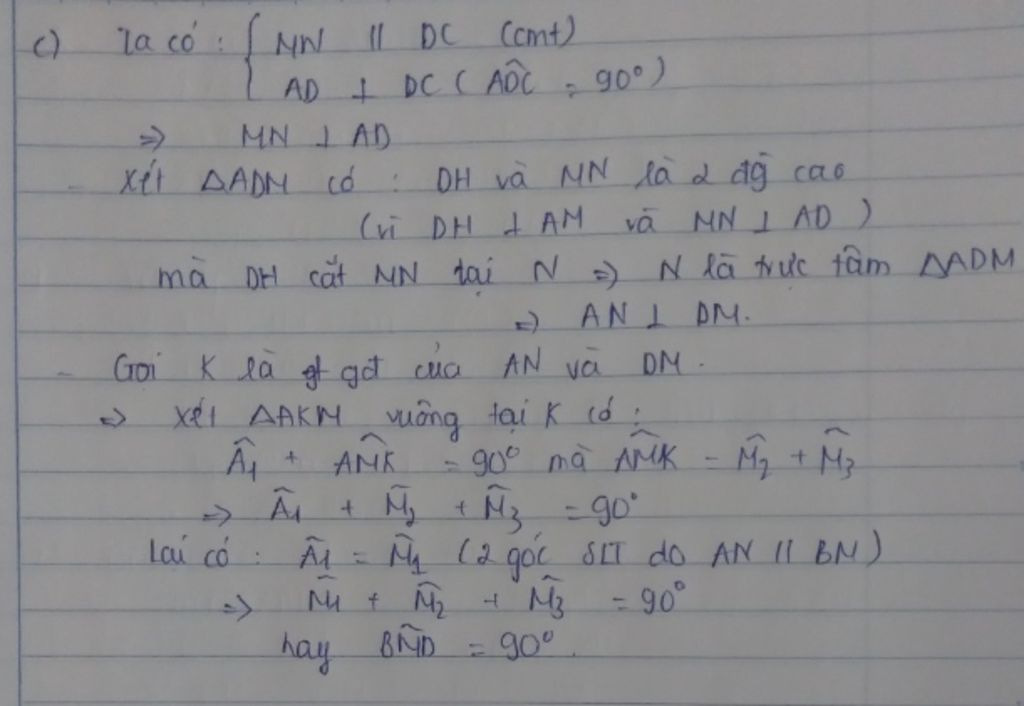 c) Ta có : { MN // DC (cmt)
AD ⊥ DC ( AD̂C = 90° )
=> MN ⊥ AD
- Xét ΔADM có : DH và MN là 2 đg cao
(vì DH ⊥ AM và MN ⊥ AD )
mà DH cắt MN tại N => N là trực tâm ΔADM
=> AN ⊥ DM.
- Gọi K là gđ của AN và DM .
=> Xét ΔAKM vuông tại K có :
Â₁ + AM̂K = 90° mà AM̂K = M̂₂ + M̂₃
=> Â₁ + M̂₂ + M̂₃ = 90°
Lại có : Â₁ = M̂₁ (2 góc SLT do AN // BM )
=> M̂₁ + M̂₂ + M̂₃ = 90°
hay BM̂D = 90° .